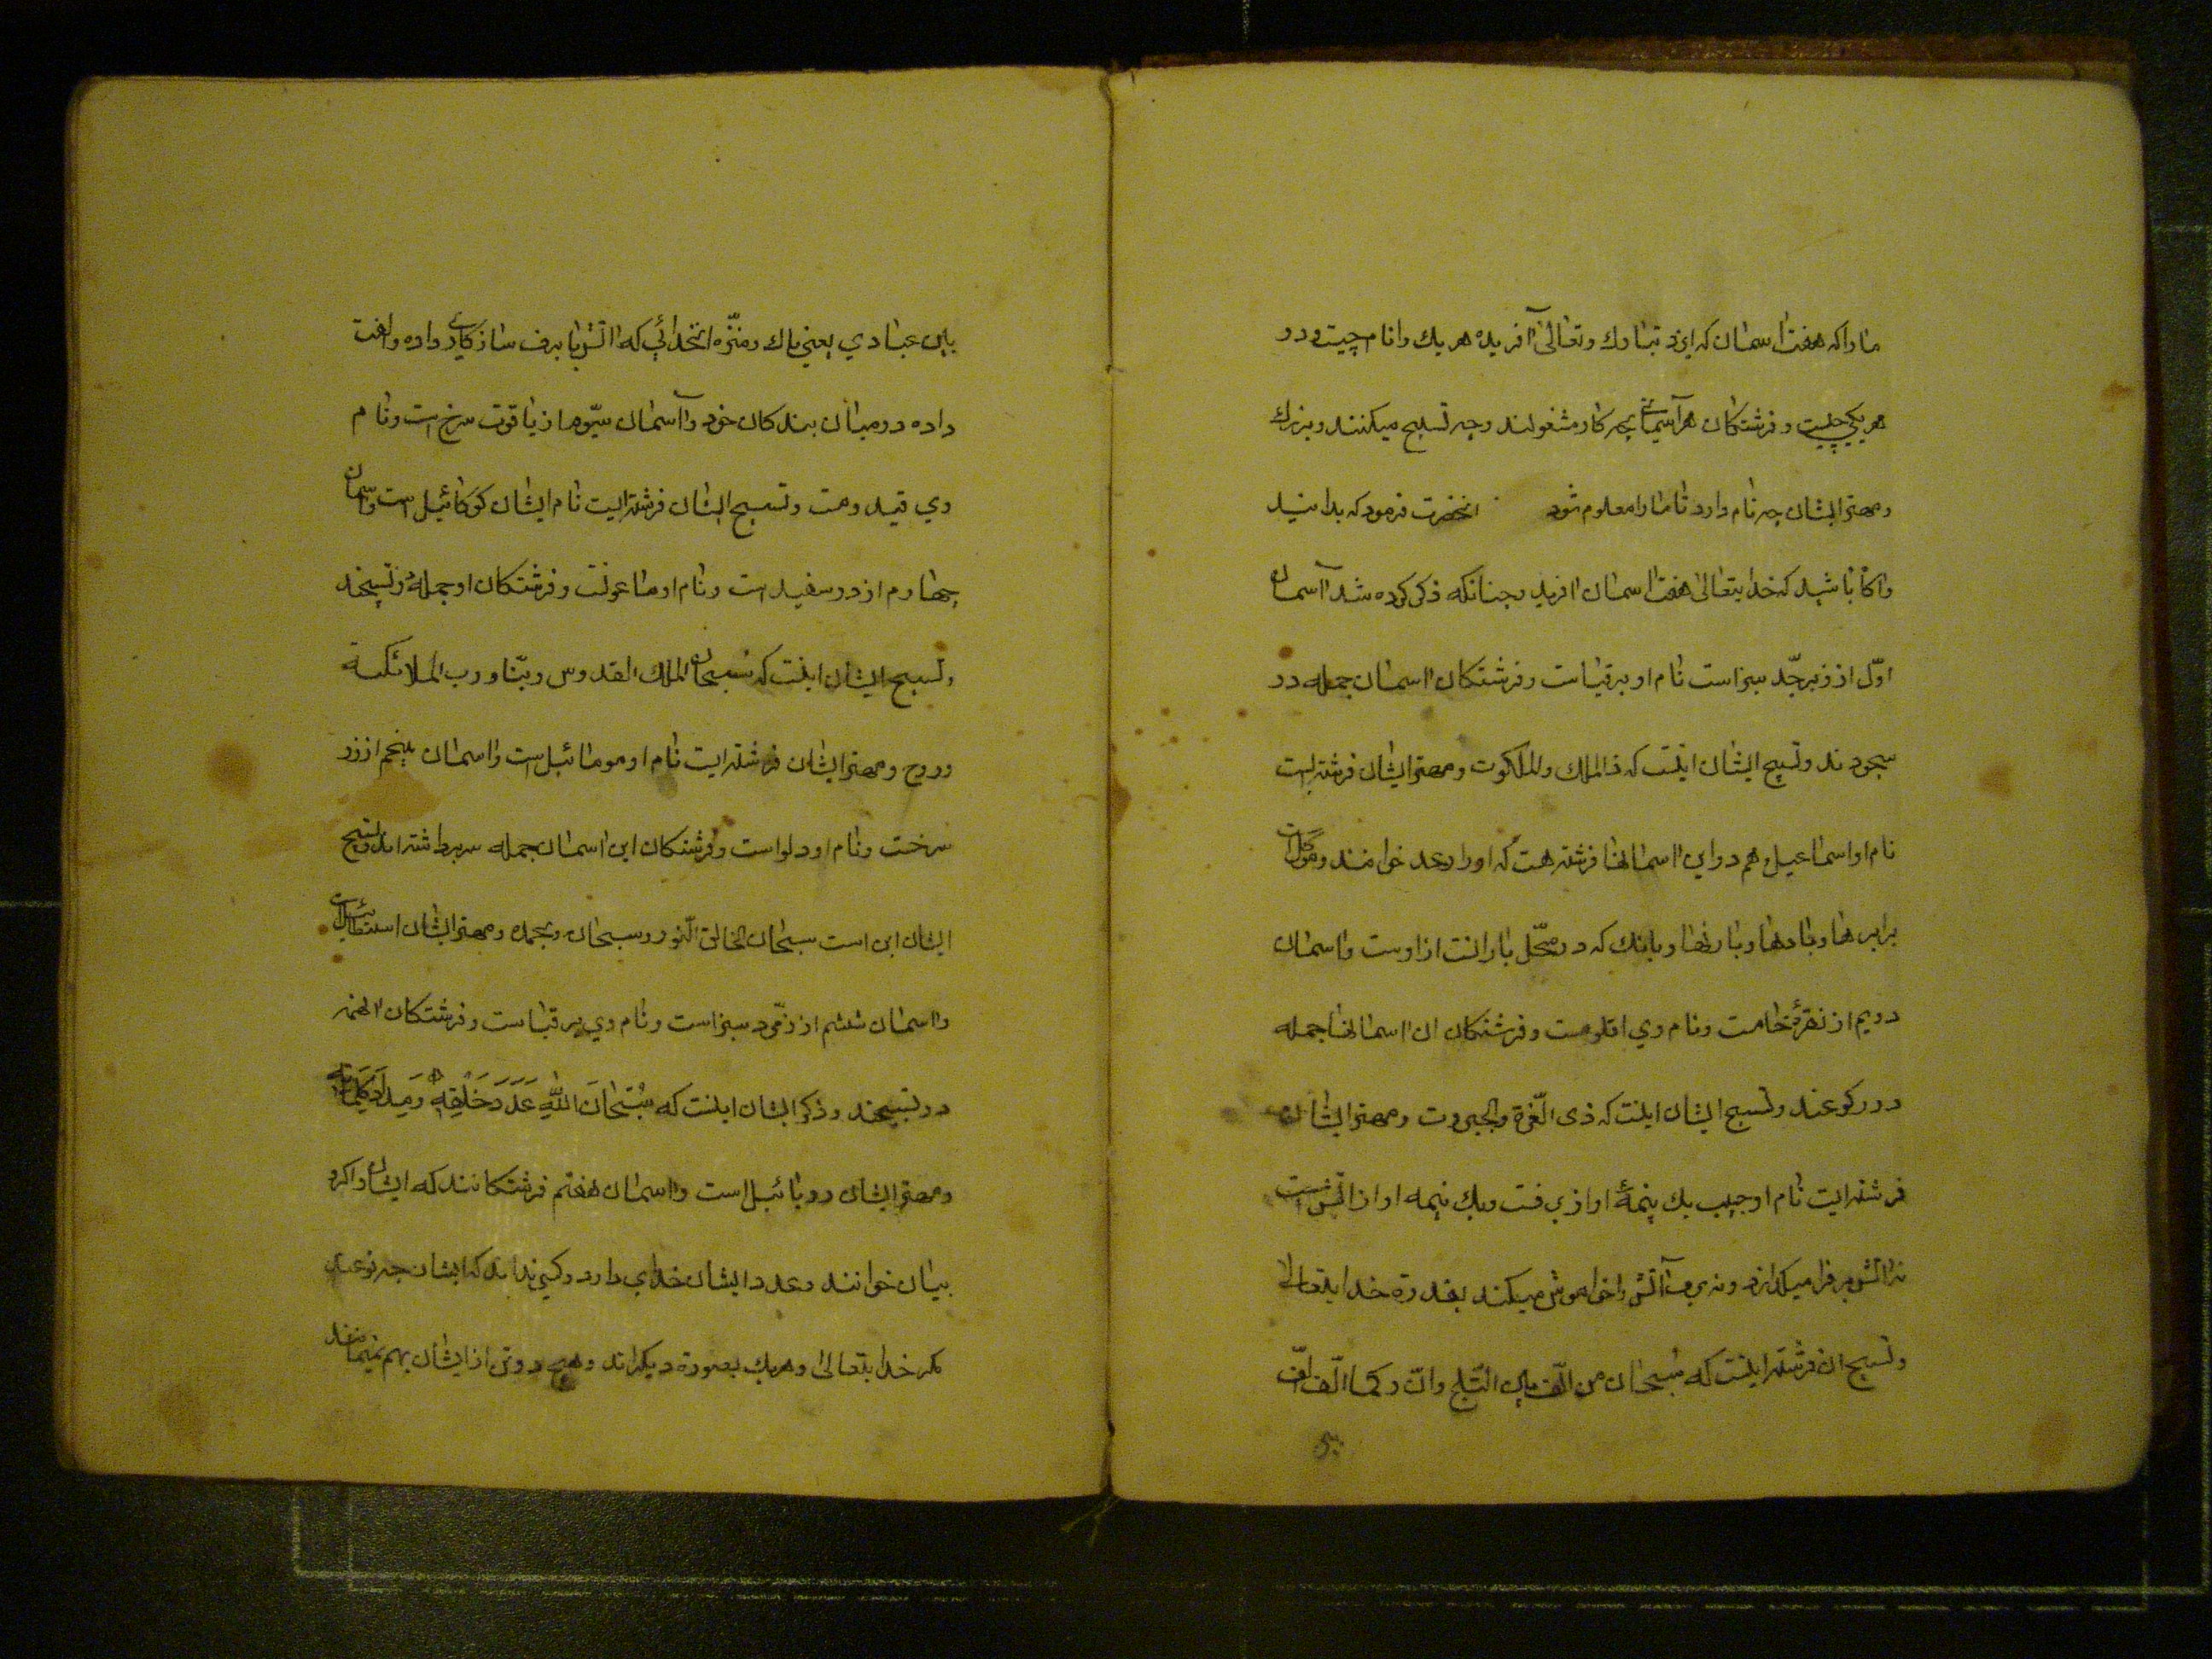 مارا که هفت اسمان که ایزد تبارك وتعالی آفریده هر یك را نام چیست و در
هر یکی چیست و فرشتکان هر آسمانی بچه کار مشغولند و چه تسبیح میکنند و بزرك
و مهتر ایشان چه نام دارد تا مارا معلوم شود انحضرت فرمود که بدانید
و اکاه باشید که خدایتعالی هفت اسمان افرید و چنانکه ذکر کرده شد آسمان
اوّل از زبرجّد سبز است نام او برقیاست و فرشتکان ان اسمان جمله در
سجودند و تسبیح ایشان اینست که ذالملك والملکوت و مهتر ایشان فرشته ایست
نام او اسماعیل و هم در این اسمانها فرشته هست که اورا رعد خوانند و موکّل است
بر ابرها و بادها و بارانها و بانك که در محّل بارانست از اوست و اسمان
دویم از نقرۀ خامست و نام وی اقلومست و فرشتکان ان اسمانها جمله
در رکوعند و تسبیح ایشان اینست که ذی الّعزة والجبروت و مهتر ایشان
فرشته ایست نام او جیب یك نیمۀ او از برفست و یك نیمه او از اتش است
نه اتش برف را میکدازد و نه برف آتش را خواموش میکند بقدرة خدایتعالی
و تسبیح ان فرشته اینست که سُبحان من الّف بین الثّلج والنّار کما الّف الّف
بین عبادي یعنی پاك و منزّه ان خدائي که اتش با برف سازکاری داده و الفت
داده در میان بندکان خود و آسمان سیّوم از یاقوت سرخ است و نام
وي قیدومست و تسبیح ایشان فرشته ایست نام ایشان کوکائیل است و اسمان
چهارم از در سفید است و نام او ماعونست و فرشتکان او جمله در تسبیحند
و تسبیح ایشان اینست که سُبحان الملك القدوس ربّنا و رب الملائکة
و روح و مهتر ایشان فرشته ایست نام او مومائیل است و اسمان پنجم از زر
سرخست و نام او دلواست و فرشتکان این اسمان جمله سر برداشته اند و تسبیح
ایشان این است سبحان الخالق النّور و سبحان و بحمده و مهتر ایشان
و اسمان ششم از زمّرد سبز است و نام وی برقیاست و فرشتکان
در تسبیحند و ذکر ایشان اینست که سُبْحَانَ اللّٰهِ عَدَدَ خَلْقِهِ وَمِدَادَ کَلِمَاتِهِ
و مهتر ایشان روبائیل است و اسمان هفتم فرشتکانند که ایشان را کرو
بیان خوانند و عدد ایشان خدای دارد و کسی نداند که ایشان چه نوعند
مکر خدایتعالی و هر یك بصورة دیکراند و هیچ دو تن از ایشان بهم نمیمانند